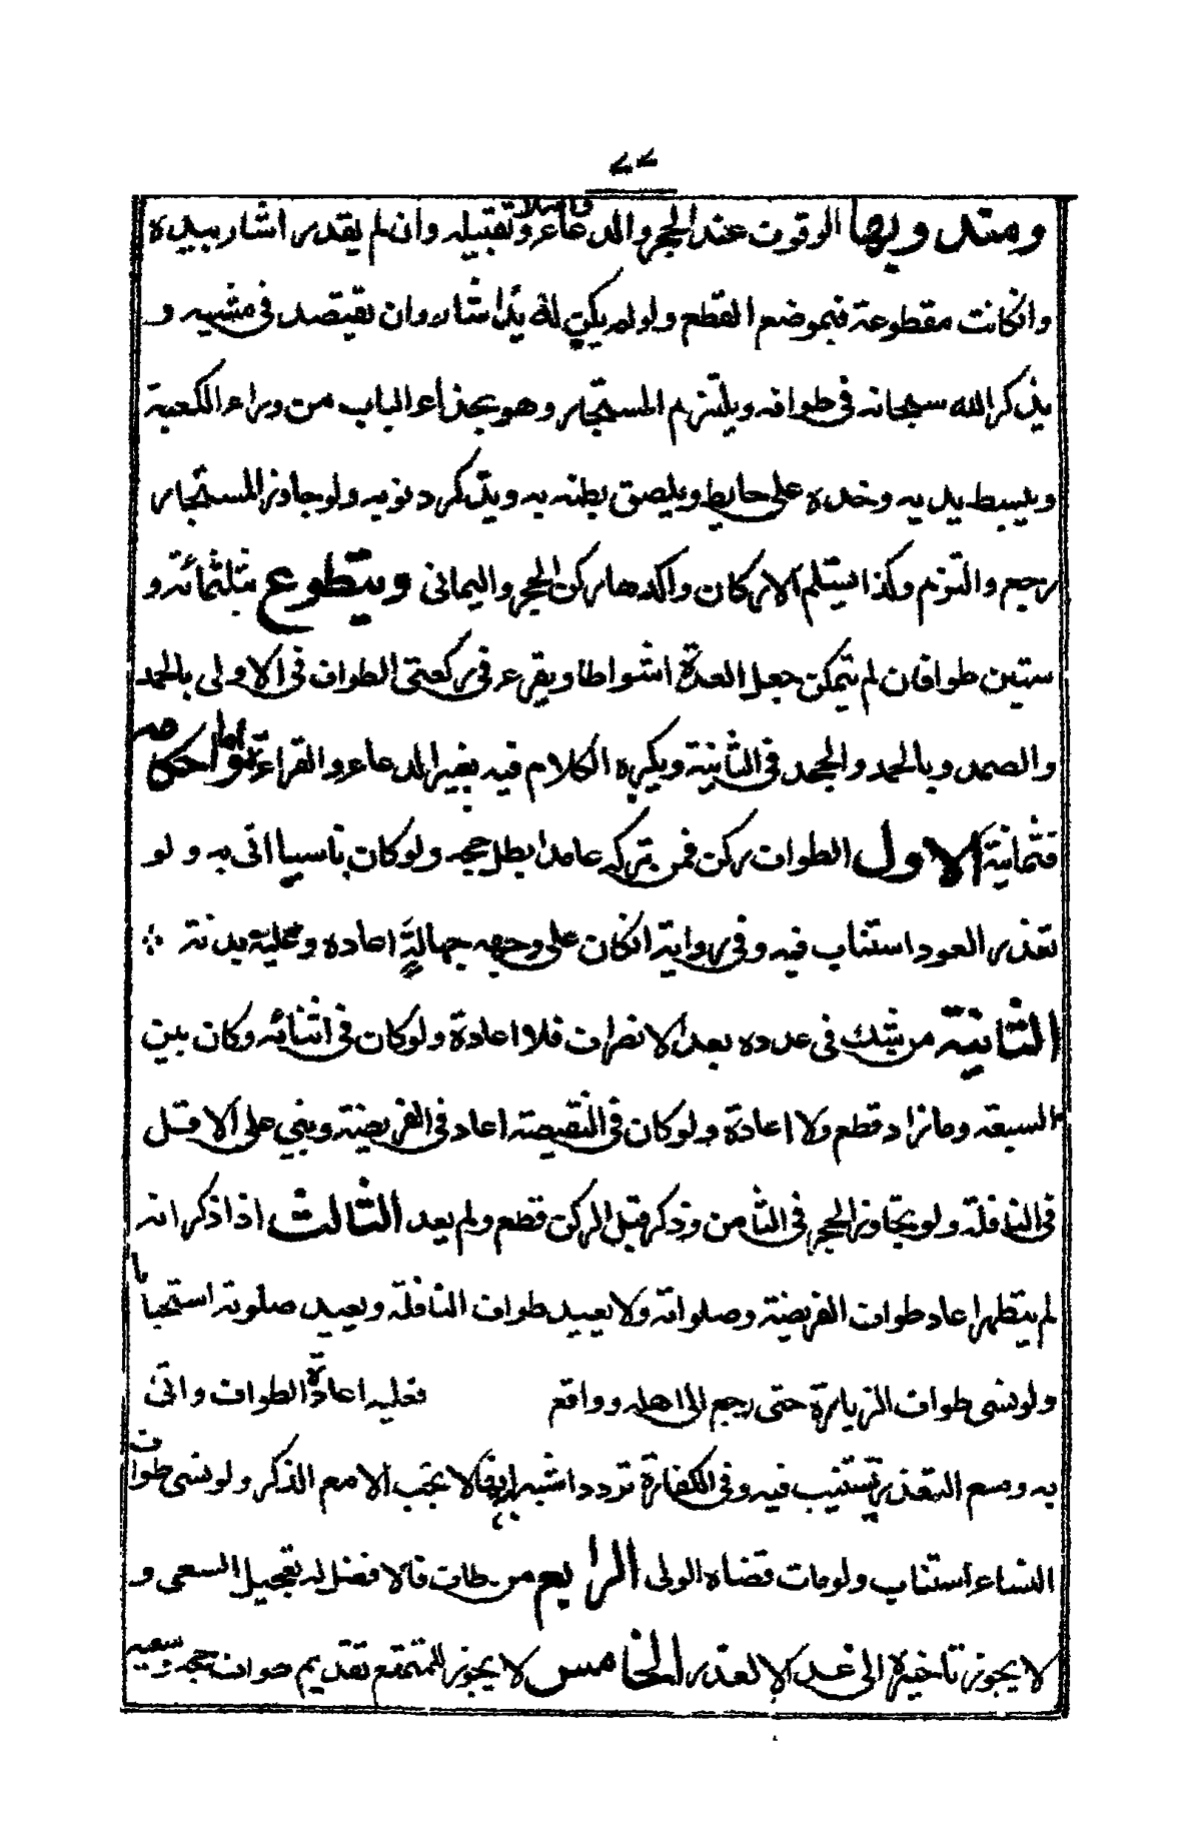 ٧٧
ومندوبها الوقوف عند الحجر والدعاء وتقبيله وان لم يقدر اشار بيده
وانكانت مقطوعة فبموضع القطع ولو لم يكن له يد اشار وان يقتصد فى مشيه و
يذكر الله سبحانه فى طوافه ويلتزم المستجار وهو بحذاء الباب من وراء الكعبة
ويبسط يديه وخده على حايطه ويلصق بطنه به ويذكر ذنوبه ولو جاوز المستجار
رجع والتزم وكذا يستلم الاركان واكدها ركن الحجر واليمانى ويتطوع بثلثمائة و
ستين طوافا فان لم يتمكن جعل العدة اشواطا ويقرء فى ركعتى الطواف فى الاولى بالحمد
والصمد وبالحمد والجحد فى الثانية ويكره الكلام فيه بغير الدعاء والقراءة واما احكامه
فثمانية الاول الطواف ركن فمن تركه عامدا بطل حجه ولو كان ناسيا اتى به ولو
تعذر العود استناب فيه وفى رواية انكان على وجه جهالةٍ اعاده وعليه بدنة
الثانية من شك فى عدده بعد الانصراف فلا اعادة ولو كان فى اثنائه وكان بين
السبعة وما زاد قطع ولا اعادة ولو كان فى النقيصة اعاد فى الفريضة وبنى على الاقل
فى النافلة ولو تجاوز الحجر فى الثامن وذكر قبل الركن قطع ولم يعد الثالث اذا ذكر انه
لم يتطهر اعاد طواف الفريضة وصلواته ولا يعيد طواف النافلة ويعيد صلوته استحبابا
ولو نسى طواف الزيارة حتى رجع الى اهله وواقع فعليه اعادة الطواف واتى
به ومع التعذر يستنيب فيه وفى الكفارة تردد اشبه انها لا يجب الا مع الذكر ولو نسى طواف
النساء استناب ولو مات قضاه الولى الرابع من طاف فالافضل له تعجيل السعى و
لا يجوز تاخيره الى غد الا لعذر الخامس لا يجوز للمتمتع تقديم طواف حجه وسعيه